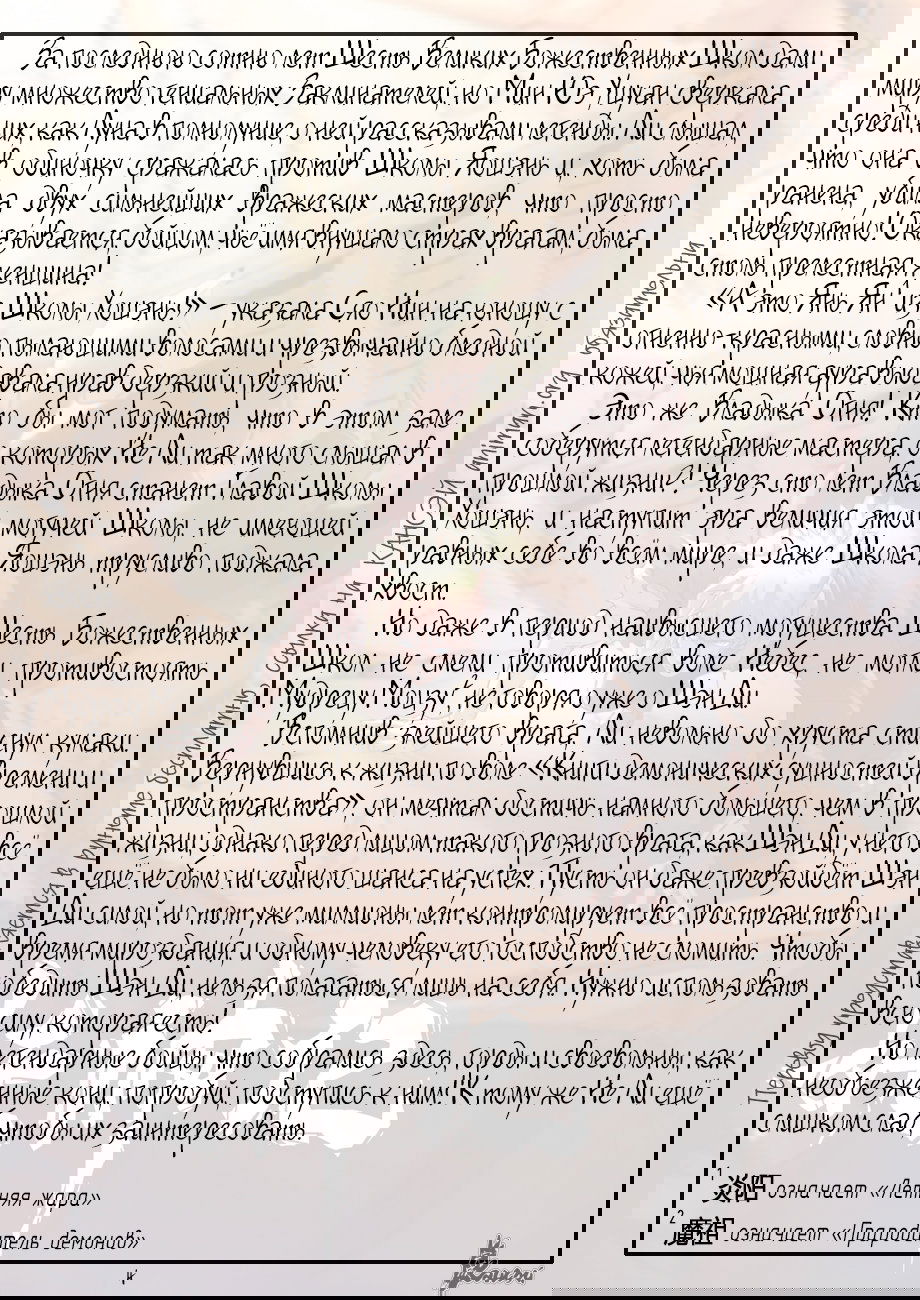 За последнюю сотню лет Шесть Великих Божественных Школ дали
миру множество гениальных Заклинателей, но Мин Юэ Уушан сверкала
среди них как Луна в полнолуние, о ней рассказывали легенды. Ли слышал,
что она в одиночку сражалась против Школы Яошэнь и, хоть была
ранена, убила двух сильнейших вражеских мастеров, что просто
невероятно! Оказывается, бойцом, чьё имя внушало страх врагам, была
столь прелестная женщина!
«А это Янь Ян¹ из
Школы Хошэнь!» – указала Сяо Нин на юношу с
огненно-красными, словно
пылающими волосами и чрезвычайно бледной
кожей, чья мощная аура
нрав дерзкий и грозный.
Это же Владыка Огня! Кто бы мог подумать, что в этом зале
соберутся легендарные мастера, о которых Не Ли так много слышал в
прошлой жизни?! Через сто лет Владыка Огня станет Главой Школы
Хошэнь, и наступит эра величия этой могучей Школы, не имеющей
равных себе во всём мире, и даже Школа Яошэнь трусливо поджала
хвост.
Но даже в период наивысшего могущества Шесть Божественных
Школ не смели противиться воле Небес, не могли противостоять
Мудрецу Моцзу², не говоря уже о Шэн Ди.
Вспомнив злейшего врага, Ли невольно до хруста стиснул кулаки.
Вернувшись к жизни по воле «Книги демонических сущностей времени и
пространства», он мечтал достичь намного большего, чем в прошлой
жизни, однако перед лицом такого грозного врага, как Шэн Ди, у него всё
ещё не было ни единого шанса на успех. Пусть он даже превзойдёт Шэн
Ди силой, но тот уже миллионы лет контролирует всё пространство и
время мироздания, и одному человеку его господство не сломить. Чтобы
победить Шэн Ди, нельзя полагаться лишь на себя. Нужно использовать
всю силу, которая есть!
Но легендарные бойцы, что собрались здесь, горды и своевольны, как
необъезженные кони, попробуй, подступись к ним! К тому же Не Ли ещё
слишком слаб, чтобы их заинтересовать.
¹ 炎阳 означает «Летняя жара»
² 魔祖 означает «Прародитель демонов»